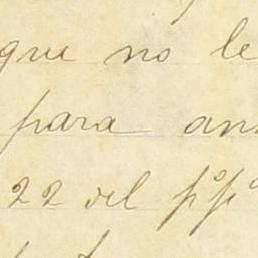 que no le
para an
22 del p.º p.º